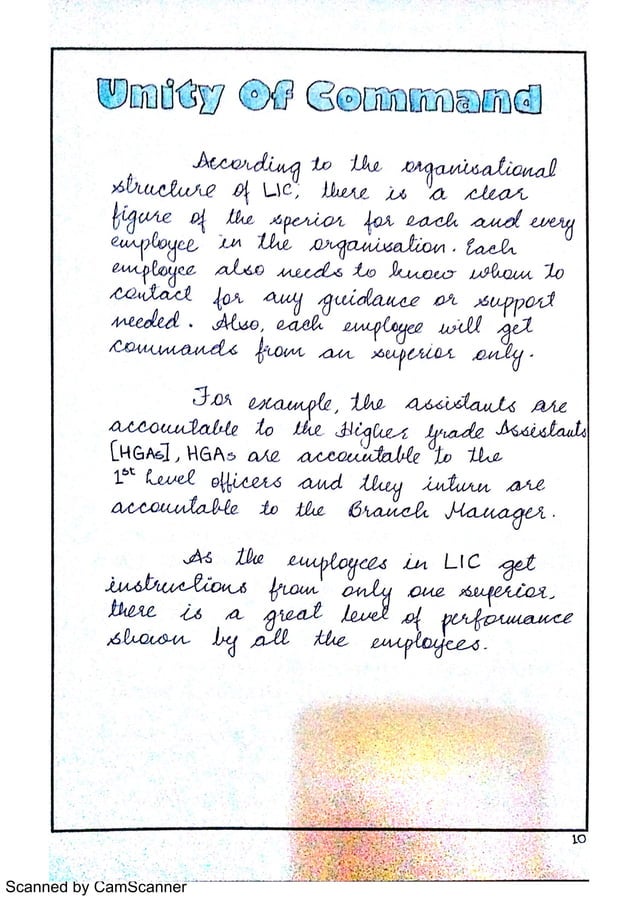 Unity Of Command
According to the organisational
structure of LIC, there is a clear
figure of the sperior for each and every
employee in the organisation. Each
employee also needs to know whom to
contact for any guidance or support
needed. Also, each employee will get
commands from an superior only.
For example, the assistants are
accountable to the Higher Grade Assistants
[HGAs], HGAs are accountable to the
1st Level officers and they inturn are
accountable to the Branch Manager.
As the employees in LIC get
instructions from only one superior,
there is a great level of performance
shown by all the employees.
10
Scanned by CamScanner